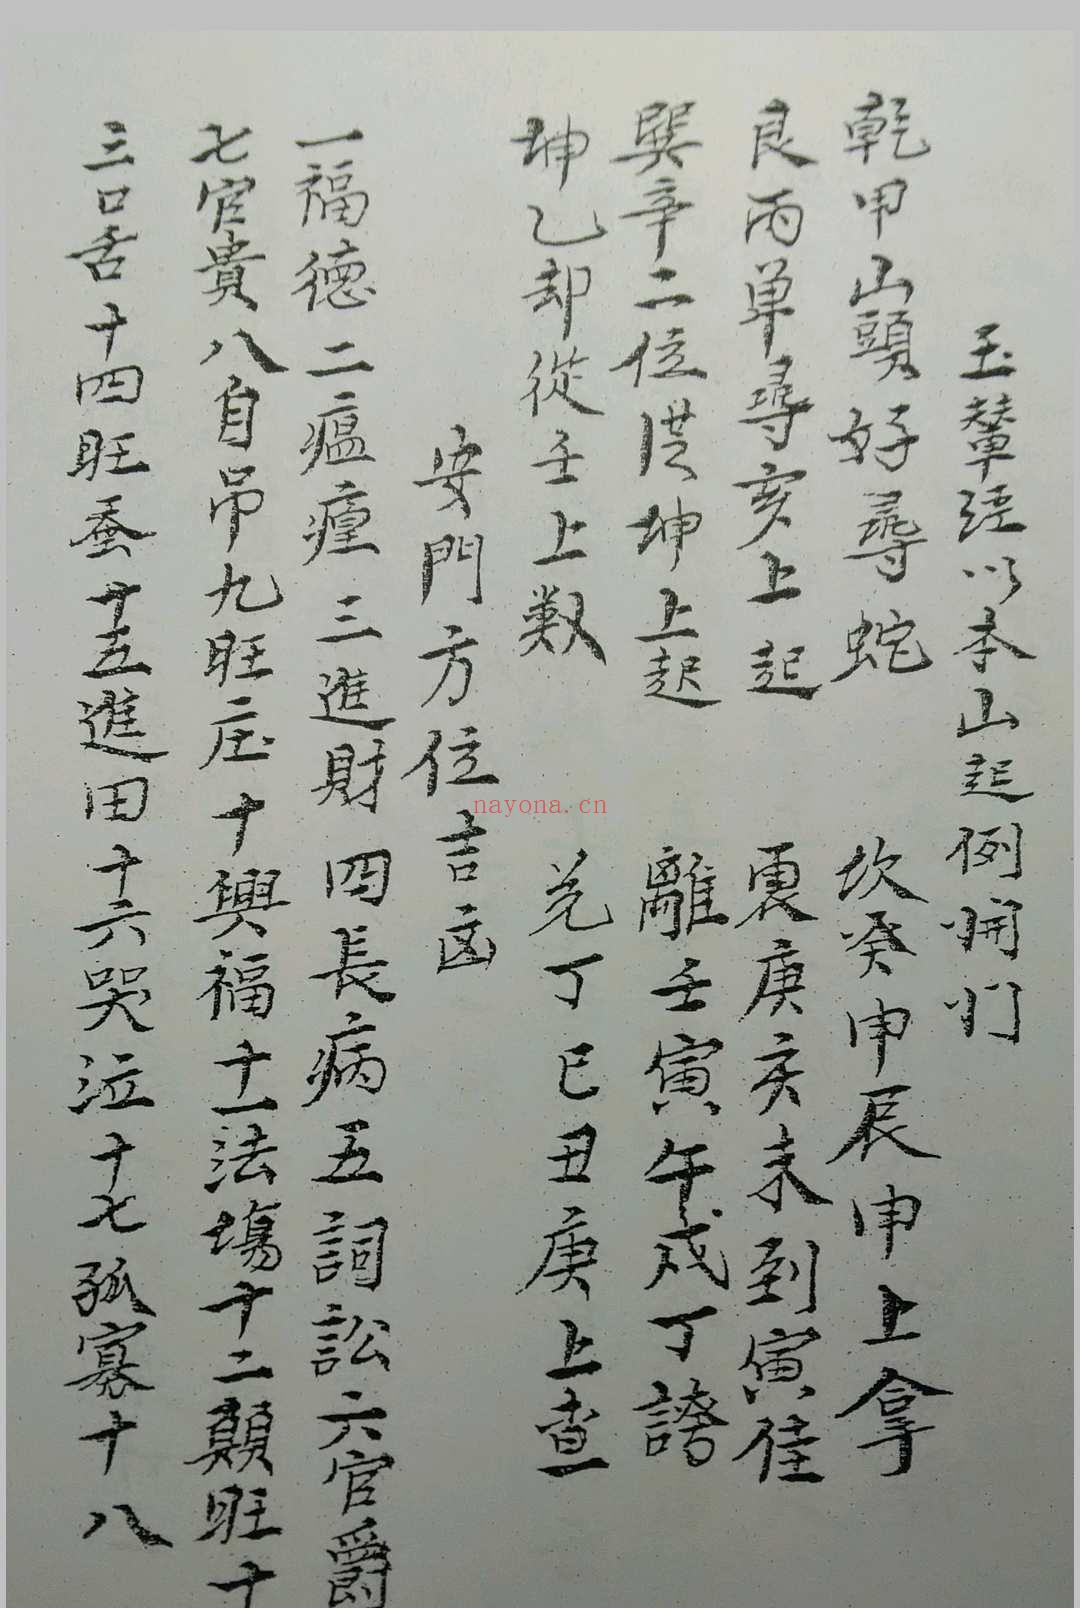 玉輦经以本山起例開门
乾甲山頭好尋蛇 坎癸申辰申上拿
艮丙单尋亥上起 震庚亥未到寅佳
巽辛二位從坤上起 離壬寅午戌丁誇
坤乙却從壬上数 兑丁巳丑庚上查
安門方位吉凶
一福德二瘟㾮三進財四長病五詞訟六官爵
七官貴八自吊九旺庄十興福十一法場十二顛旺十
三口舌十四旺蚕十五進田十六哭泣十七孤寡十八
nayona.cn